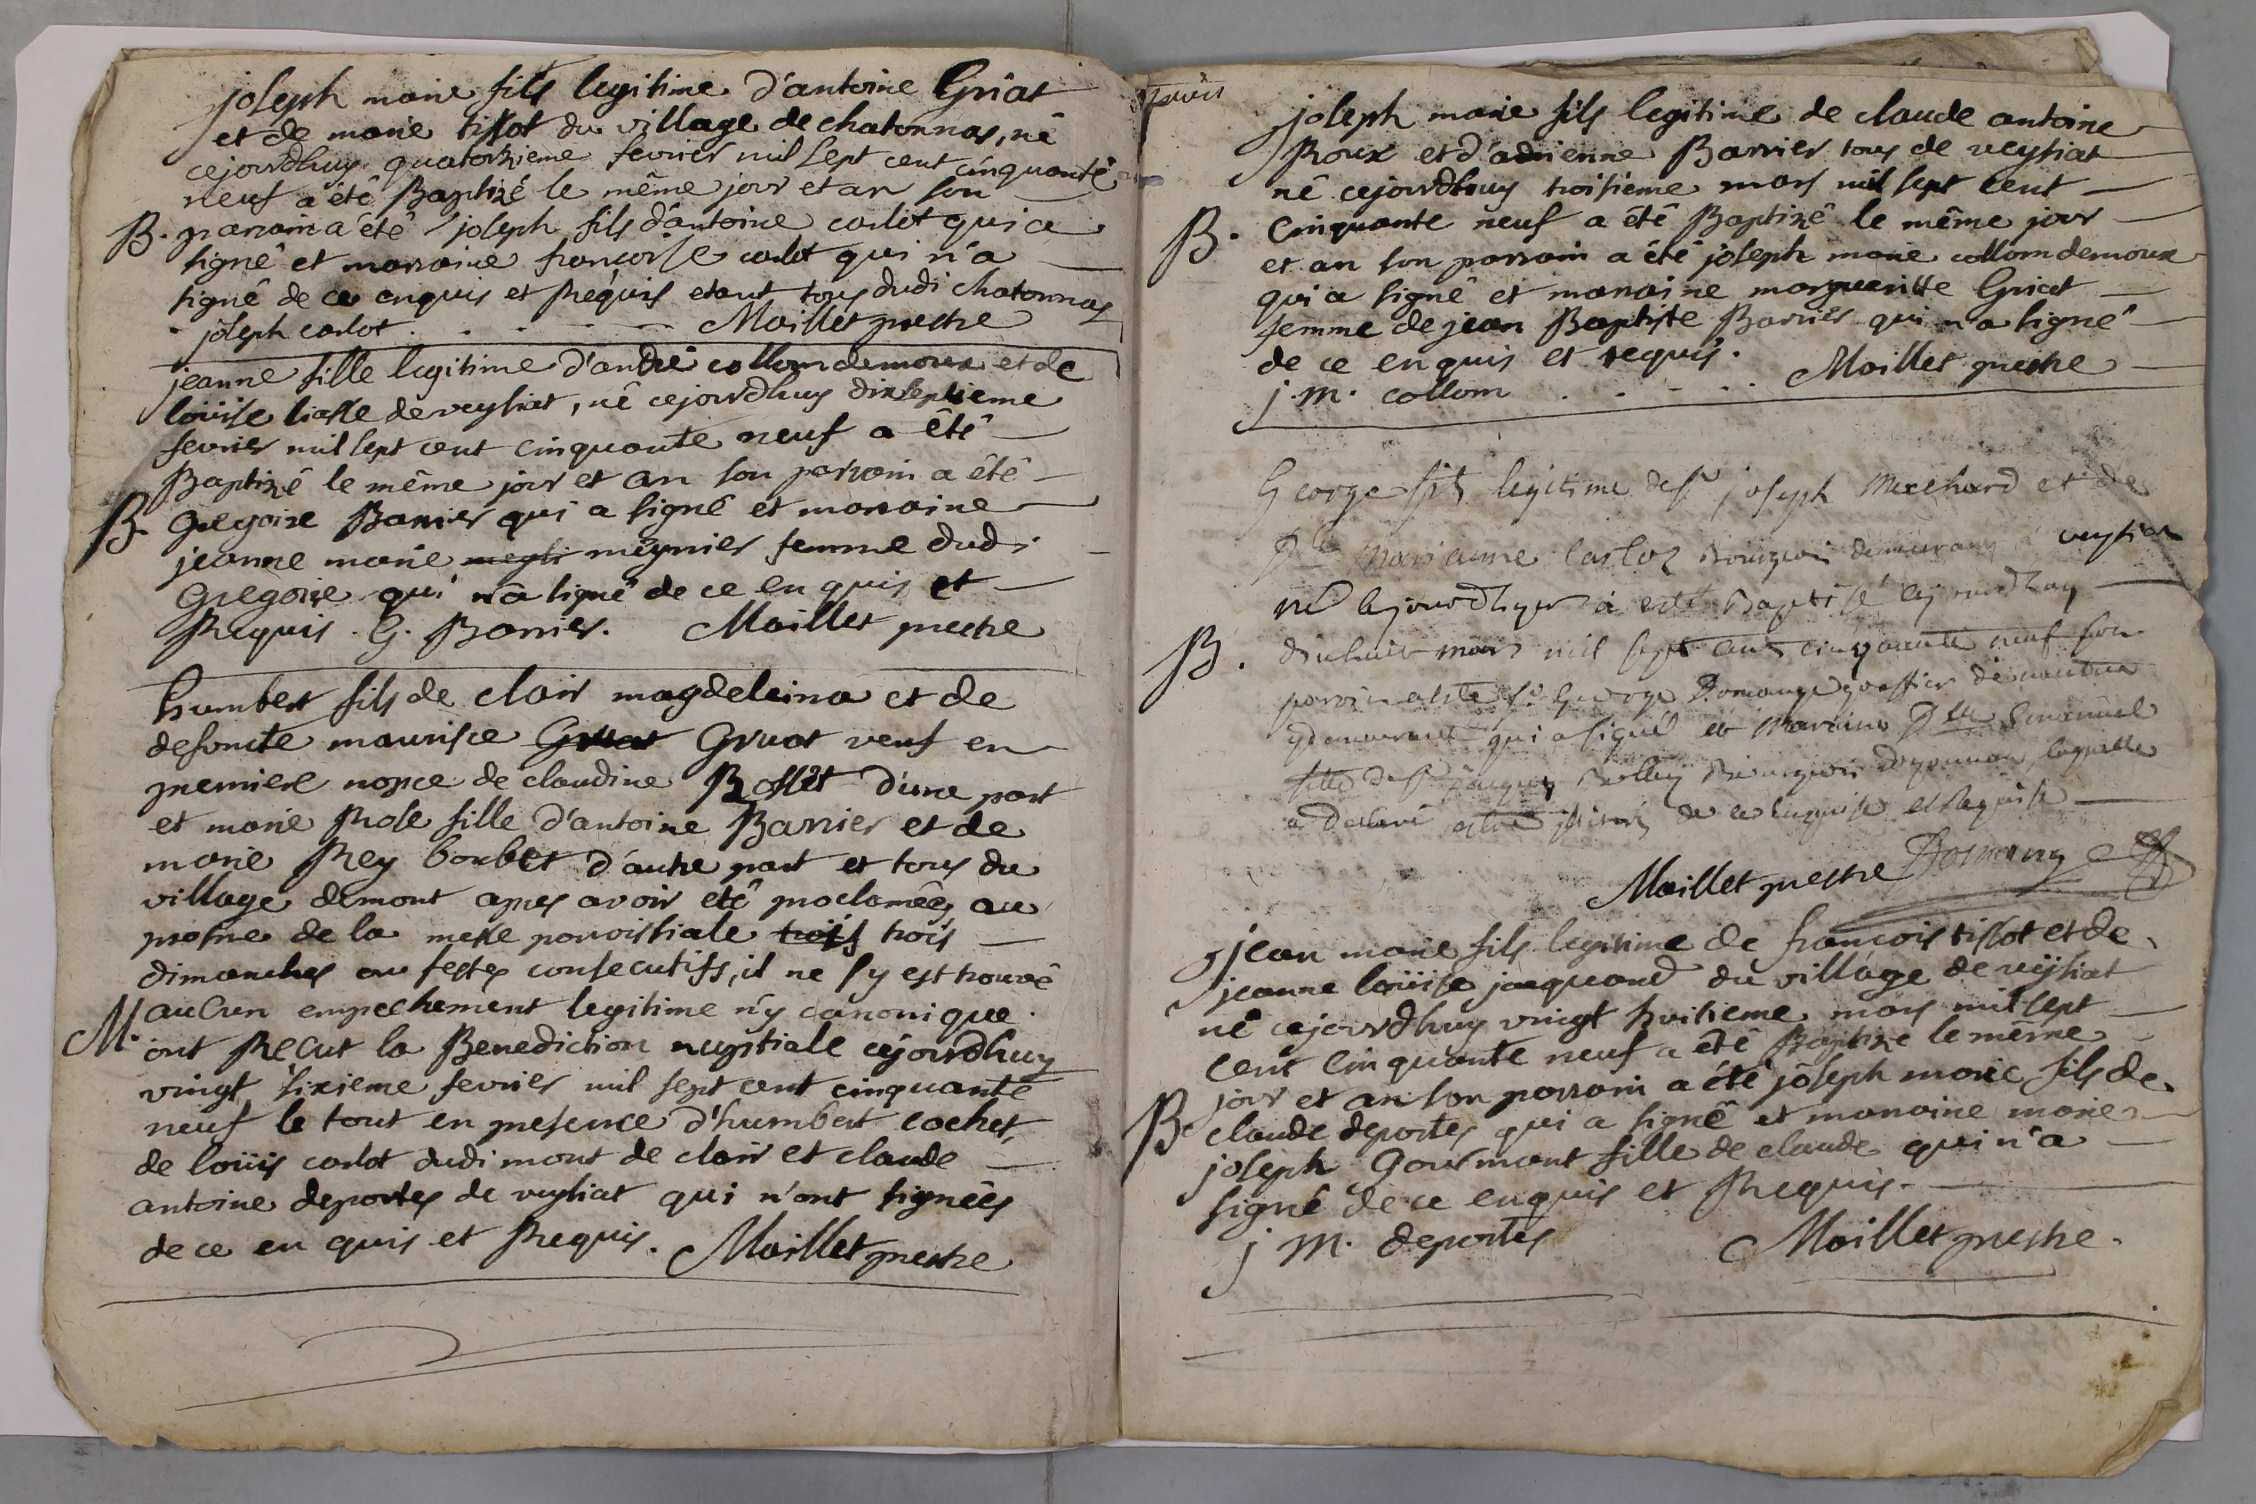 joseph marie fils legitime d'antoine Griat
et de marie tissot du village de chatonnas, né
cejourdhuy quatorzieme fevrier mil sept cent cinquante
neuf a été Baptizé le même jour et an son
B. parrain a été joseph fils d'antoine carlot qui a
signé et marraine francoise carlot qui n'a
signé de ce enquis et Requis etant tous dudi chatonnas
joseph carlot . . . . . Maillet prestre
jeanne fille legitime d'andré collomdemoux et de
loüise liasse de veysiat, né cejourdhuy dixseptieme
fevrier mil sept cent cinquante neuf a été
Baptizé le même jour et an son parrain a été
B. Gregoire Barrier qui a signé et marraine
jeanne marie megni meynier femme dudi
Gregoire qui n'a signé de ce enquis et
Requis. G. Barrier. Maillet prestre
humbert fils de clair magdeleina et de
defuncte maurisce Gruat Gruat veuf en
premiere nopce de claudine Bossêt d'une part
et marie Rose fille d'antoine Barrier et de
marie Rey boubet d'autre part et tous du
village demont apres avoir eté proclamées au
prosne de la messe parroissiale trois trois
dimanches ou festes consecutifs, il ne s'y est trouvé
M. aucun empechement legitime n'y canonique.
ont Recut la Benediction nuptiale cejourdhuy
vingt sixieme fevrier mil sept cent cinquante
neuf le tout en presence d'humbert cochet,
de loüis carlot dudi mont de clair et claude
antoine deportes de veysiat qui n'ont signées
de ce en quis et Requis. Maillet prestre
joseph marie fils legitime de claude antoine
Roux et d'adrienne Barrier tous de veysiat
né cejourdhuy troisieme mars mil sept cent
B. cinquante neuf a été Baptizé le même jour
et an son parrain a été joseph marie collomdemoux
qui a signé et marraine margueritte Griat
femme de jean Baptiste Barrier qui n'a signé
de ce enquis et requis. Maillet prestre
j. m. collom . . . .
George fils legitime de sr joseph Merchard et de
Dlle Marianne Carlot Bourgeois demeurans a veysiat
né cejourdhuy a esté Baptisé cejourdhuy
B. dixhuit mars mil sept cent cinquante neuf son
parrin a esté sr George Domange greffier de nantua
y demeurant qui a signé et Marraine Dlle
fille de sr jacques Bourgeois laquelle
a declaré de ce enquise et Requise
Maillet prestre Domange
jean marie fils legitime de francois tissot et de
jeanne loüise jacquand du village de veysiat
né cejourdhuy vingt huitieme mars mil sept
cent cinquante neuf a été Baptizé le même
jour et an son parrain a été joseph marie fils de
B. claude deportes qui a signé et marraine marie
joseph Gourmant fille de claude qui n'a
signé de ce enquis et Requis.
j m. deportes Maillet prestre.